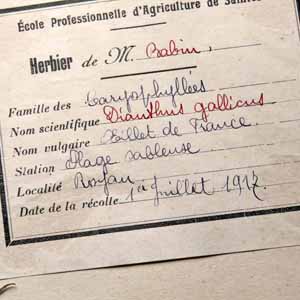 École Professionnelle d'Agriculture de
Herbier de M. Babin,
Famille des Caryophyllées
Nom scientifique Dianthus gallicus
Nom vulgaire Œillet de France.
Station Plage sableuse.
Localité Royan
Date de la récolte 1er Juillet 1917.